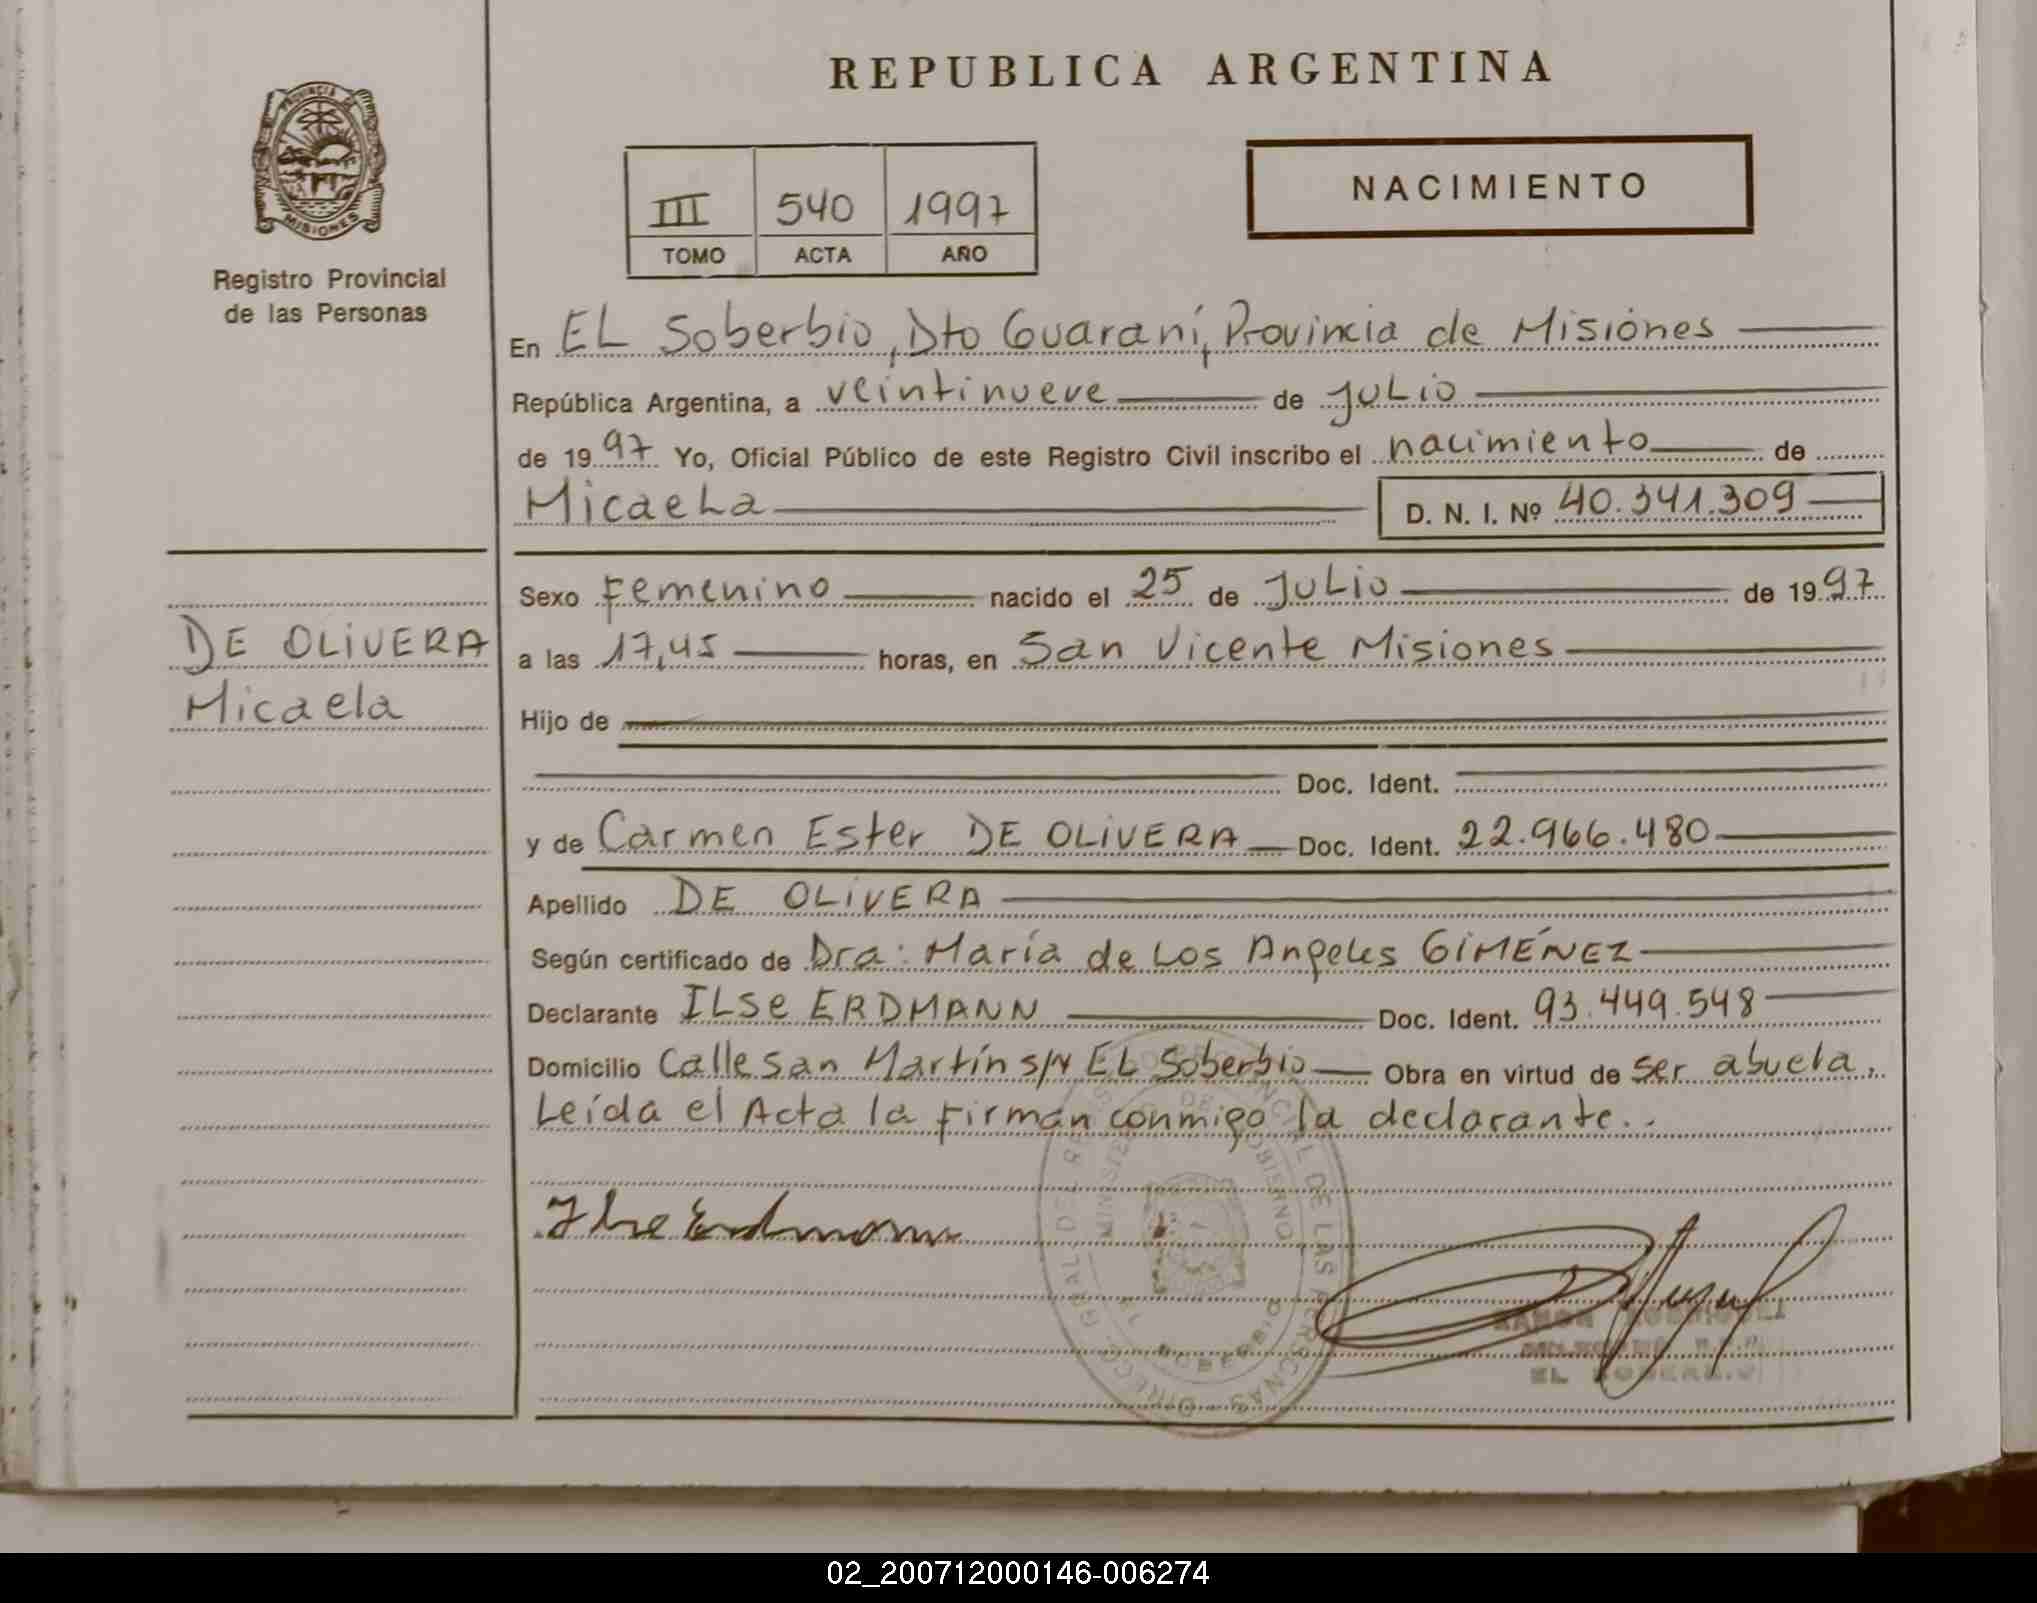 REPUBLICA ARGENTINA
PROVINCIA DE
MISIONES
Registro Provincial
de las Personas
III 540 1997
TOMO ACTA AÑO
NACIMIENTO
En EL Soberbio, Dto Guaraní, Provincia de Misiones
República Argentina, a veintinueve de JuLio
de 1997 Yo, Oficial Público de este Registro Civil inscribo el nacimiento de
MicaeLa D. N. I. Nº 40.341.309
DE OLiVERA
Micaela
Sexo Femenino nacido el 25 de JuLio de 1997
a las 17,45 horas, en San Vicente Misiones
Hijo de
Doc. Ident.
y de Carmen Ester DE OLiVERA Doc. Ident. 22.966.480
Apellido DE OLiVERA
Según certificado de Dra: María de Los Angeles GiMÉNEZ
Declarante ILSe ERDMANN Doc. Ident. 93.449.548
Domicilio Calle San Martín s/N EL Soberbio Obra en virtud de ser abuela,
Leída el Acta la firman conmigo la declarante..
Ilse Erdmann
EL SOBERBIO
02_200712000146-006274